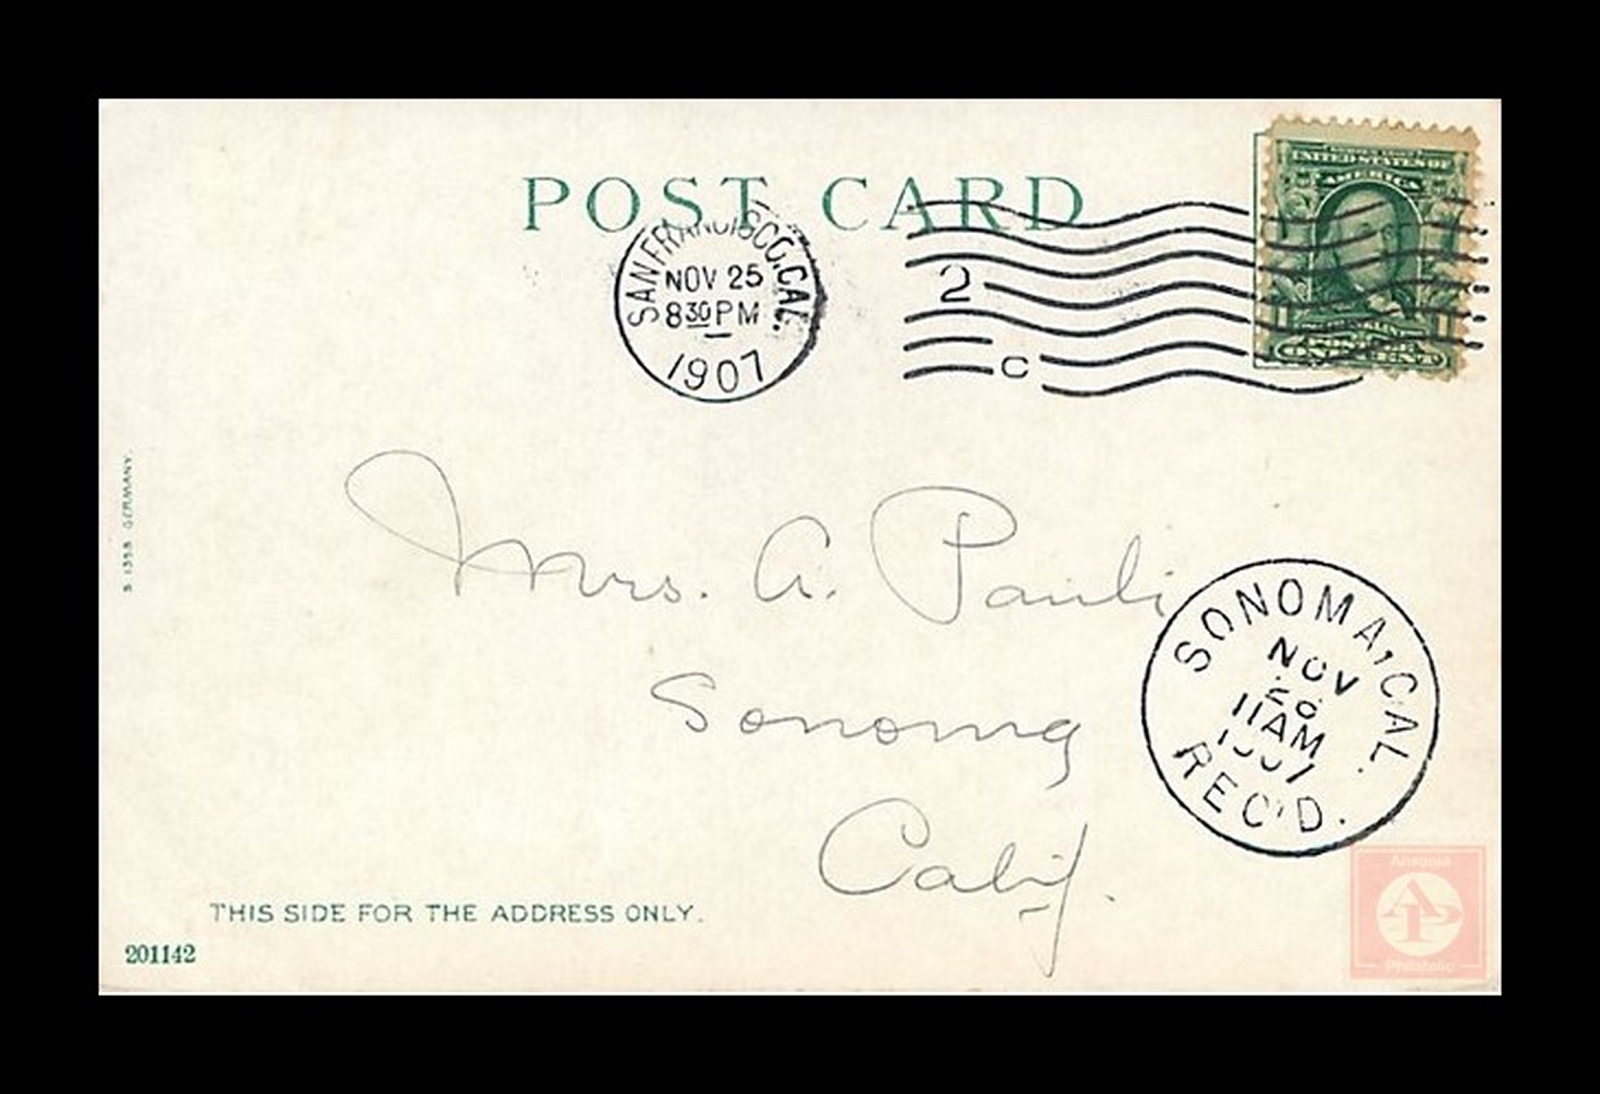 POST CARD
SAN FRANCISCO, CAL.
NOV 25
8 30 PM
1907
2
C
UNITED STATES OF
AMERICA
FRANKLIN
ONE CENT
S 1358 GERMANY.
Mrs. A. Pauli
Sonoma
Calif.
SONOMA, CAL.
NOV
26
11AM
1907
REC'D.
THIS SIDE FOR THE ADDRESS ONLY.
201142
Ansonia
AP
Philatelic